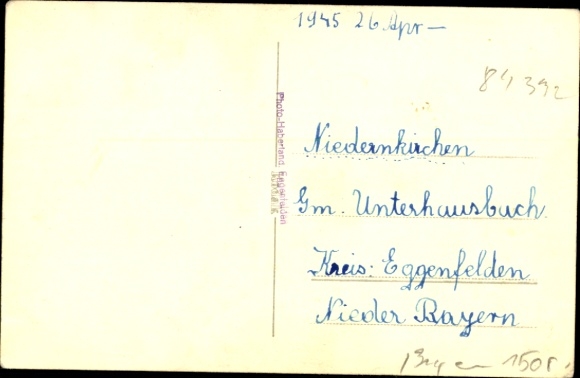 1945 26 Apr –
84 392
Photo-Haberland, Eggenfelden
Niedernkirchen
Gm. Unterhausbach
Kreis: Eggenfelden
Nieder Bayern
150